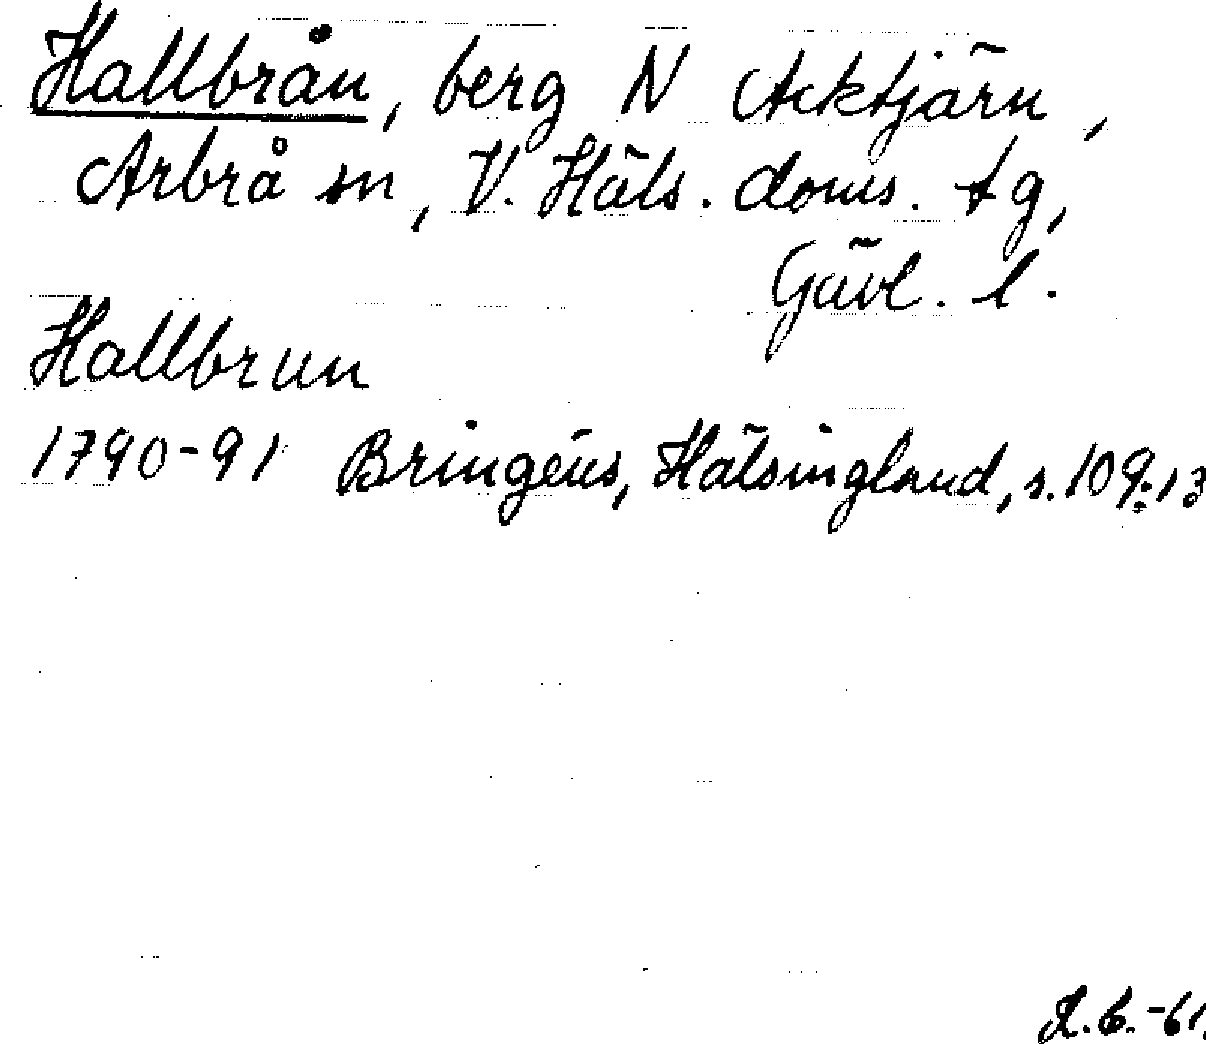 Hallbrån, berg N Acktjärn,
Arbrå sn, V. Häls. doms. tg,
Gävl. l.
Hallbrun
1790-91 Bringéus, Hälsingland, s. 109:13
R.C.-61.